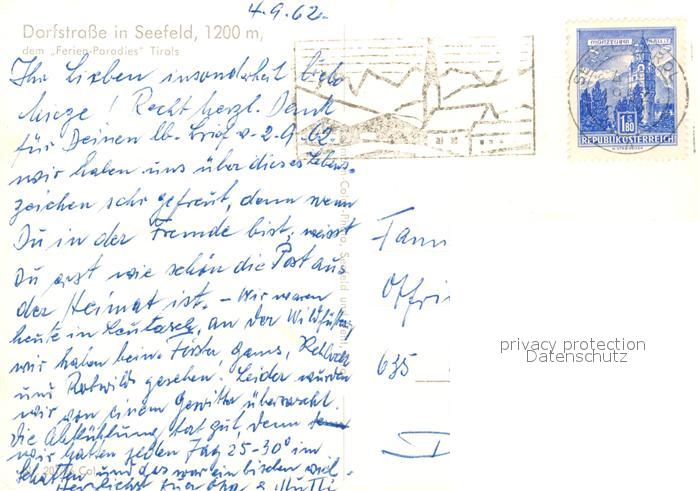 4.9.62.
Dorfstraße in Seefeld, 1200 m,
dem "Ferien-Paradies" Tirols
Ihr Lieben insonderheit liebe
! Recht herzl. Dank
für Deinen lb. Brief v. 2.9.62.
wir haben uns über dieses Lebens-
zeichen sehr gefreut, denn wenn
Du in der Fremde bist, weisst
Du erst wie schön die Post aus
der Heimat ist. - Wir waren
heute in Leutasch, an der Wildfütterg,
wir haben beim Förster Gams, Rehwild
und Rotwild gesehen. Leider wurden
wir von einem Gewitter überrascht.
Die Abkühlung tat gut, denn
wir hatten jeden Tag 25-30° im
Schatten und das war ein bischen viel.-
Herzlichst Euer Opa & Mutti
MÜNZTURM HALL I.T.
1.80
S
REPUBLIK ÖSTERREICH
Fam
Offri
635
D
privacy protection
Datenschutz